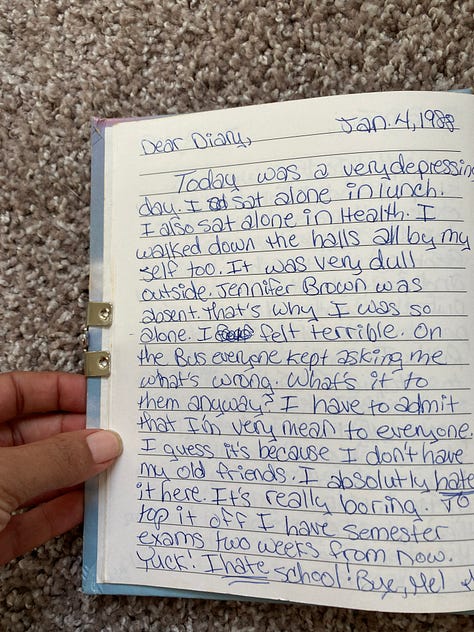 Jan. 4, 1988
Dear Diary,
Today was a very depressing
day. I sat alone in lunch.
I also sat alone in Health. I
walked down the halls all by my
self too. It was very dull
outside. Jennifer Brown was
absent. That's why I was so
alone. I felt terrible. On
the Bus everyone kept asking me
what's wrong. What's it to
them anyway? I have to admit
that I'm very mean to everyone.
I guess it's because I don't have
my old friends. I absolutly hate
it here. It's really boring. To
top it off I have semester
exams two weeks from now.
Yuck! I hate school! Bye, Me!